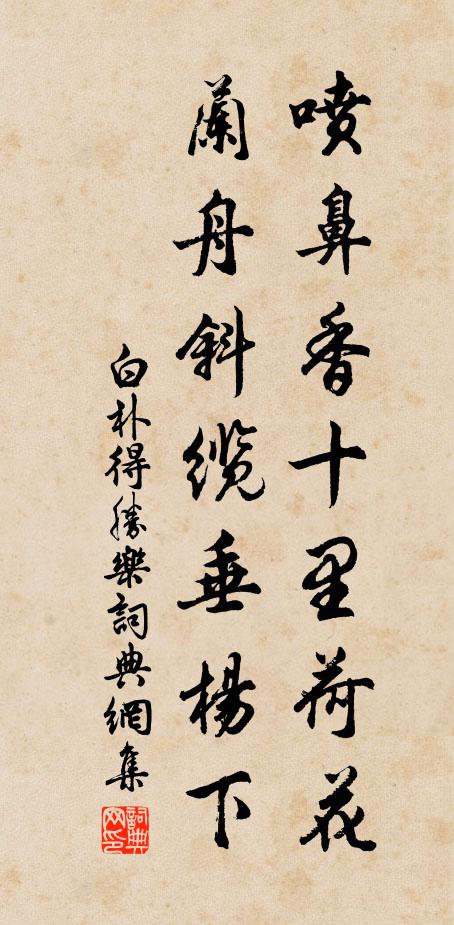 噴鼻香十里荷花
蘭舟斜纜垂楊下
白朴得勝樂詞典網集
詞典网印